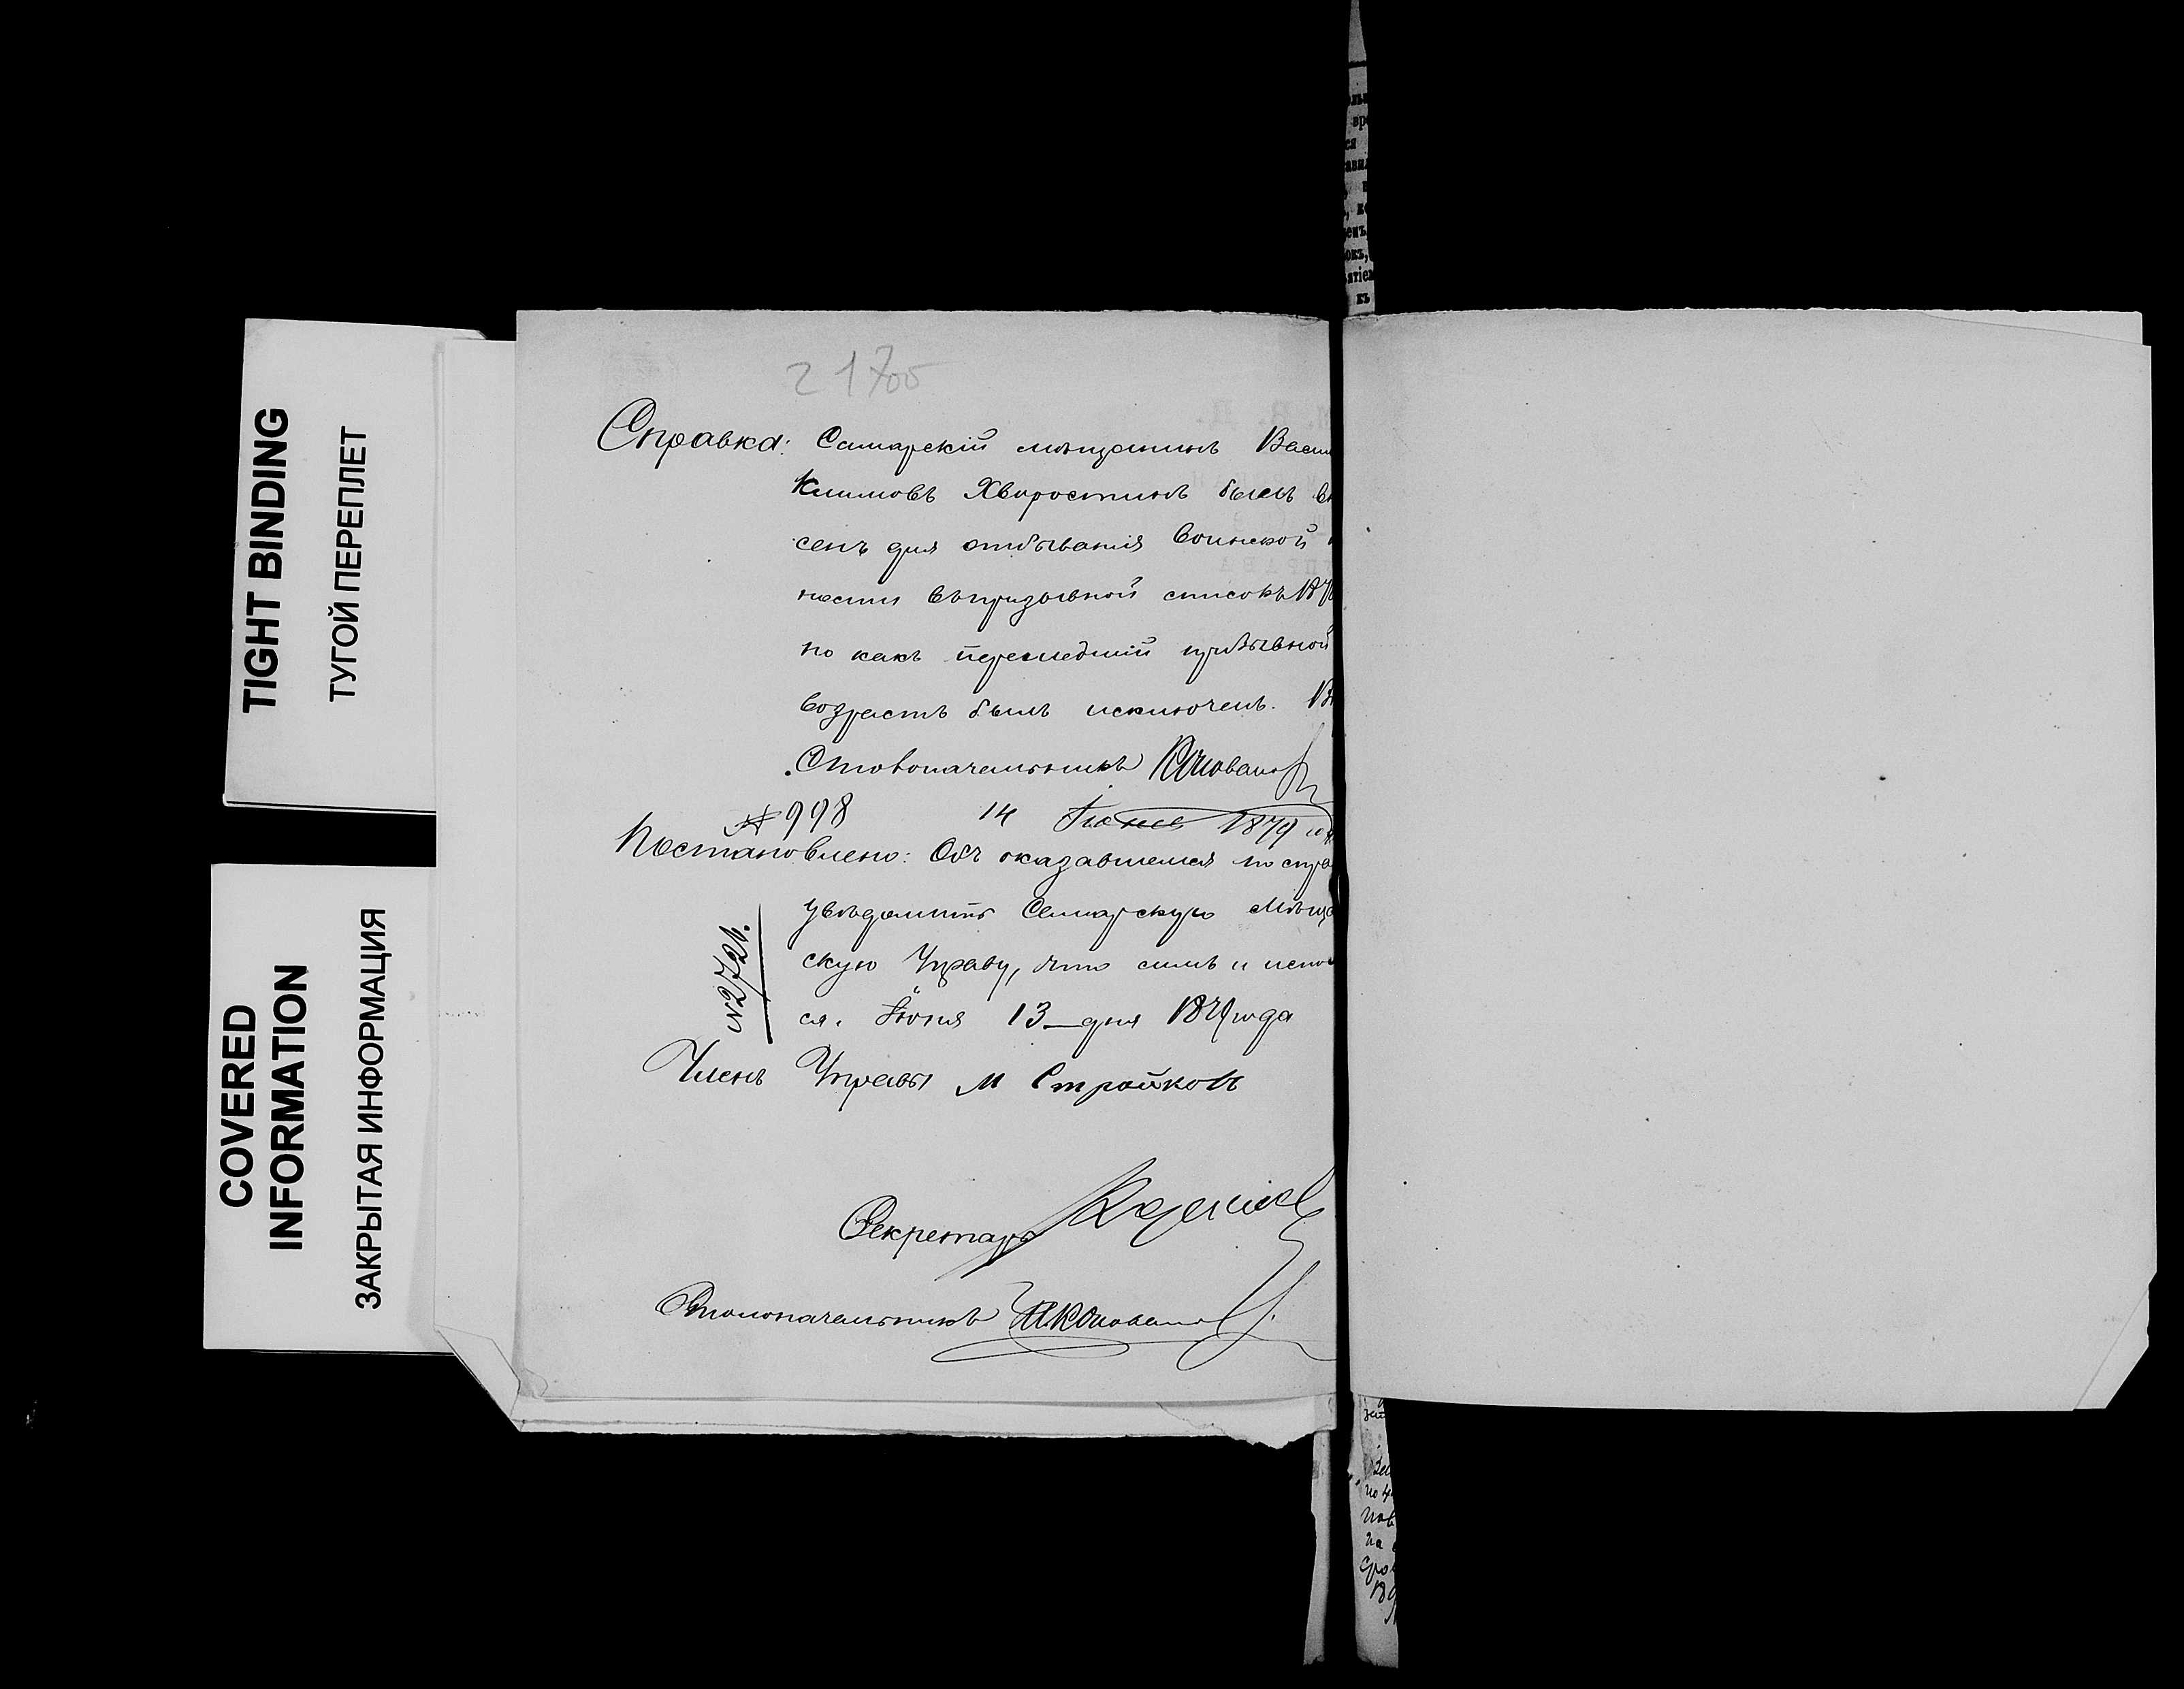 TIGHT BINDING
ТУГОЙ ПЕРЕПЛЕТ
COVERED
INFORMATION
ЗАКРЫТАЯ ИНФОРМАЦИЯ
Справка: Самарскій мѣщанинъ Васи
Климовъ Хворостинъ былъ вн
сенъ для отбыванія воинской
ности въ призывной списокъ 187
но какъ перешедшій призывной
возрастъ былъ исключенъ.
Столоначальникъ
№ 998 14 Іюня 1879
Постановлено: Объ оказавшемся по спра
увѣдомить Самарскую Мѣща
скую Управу, что симъ и испол
ся. Іюня 13 дня 1879 года
№ 2726.
Членъ Управы М Стройковъ
Секретарь
Столоначальникъ